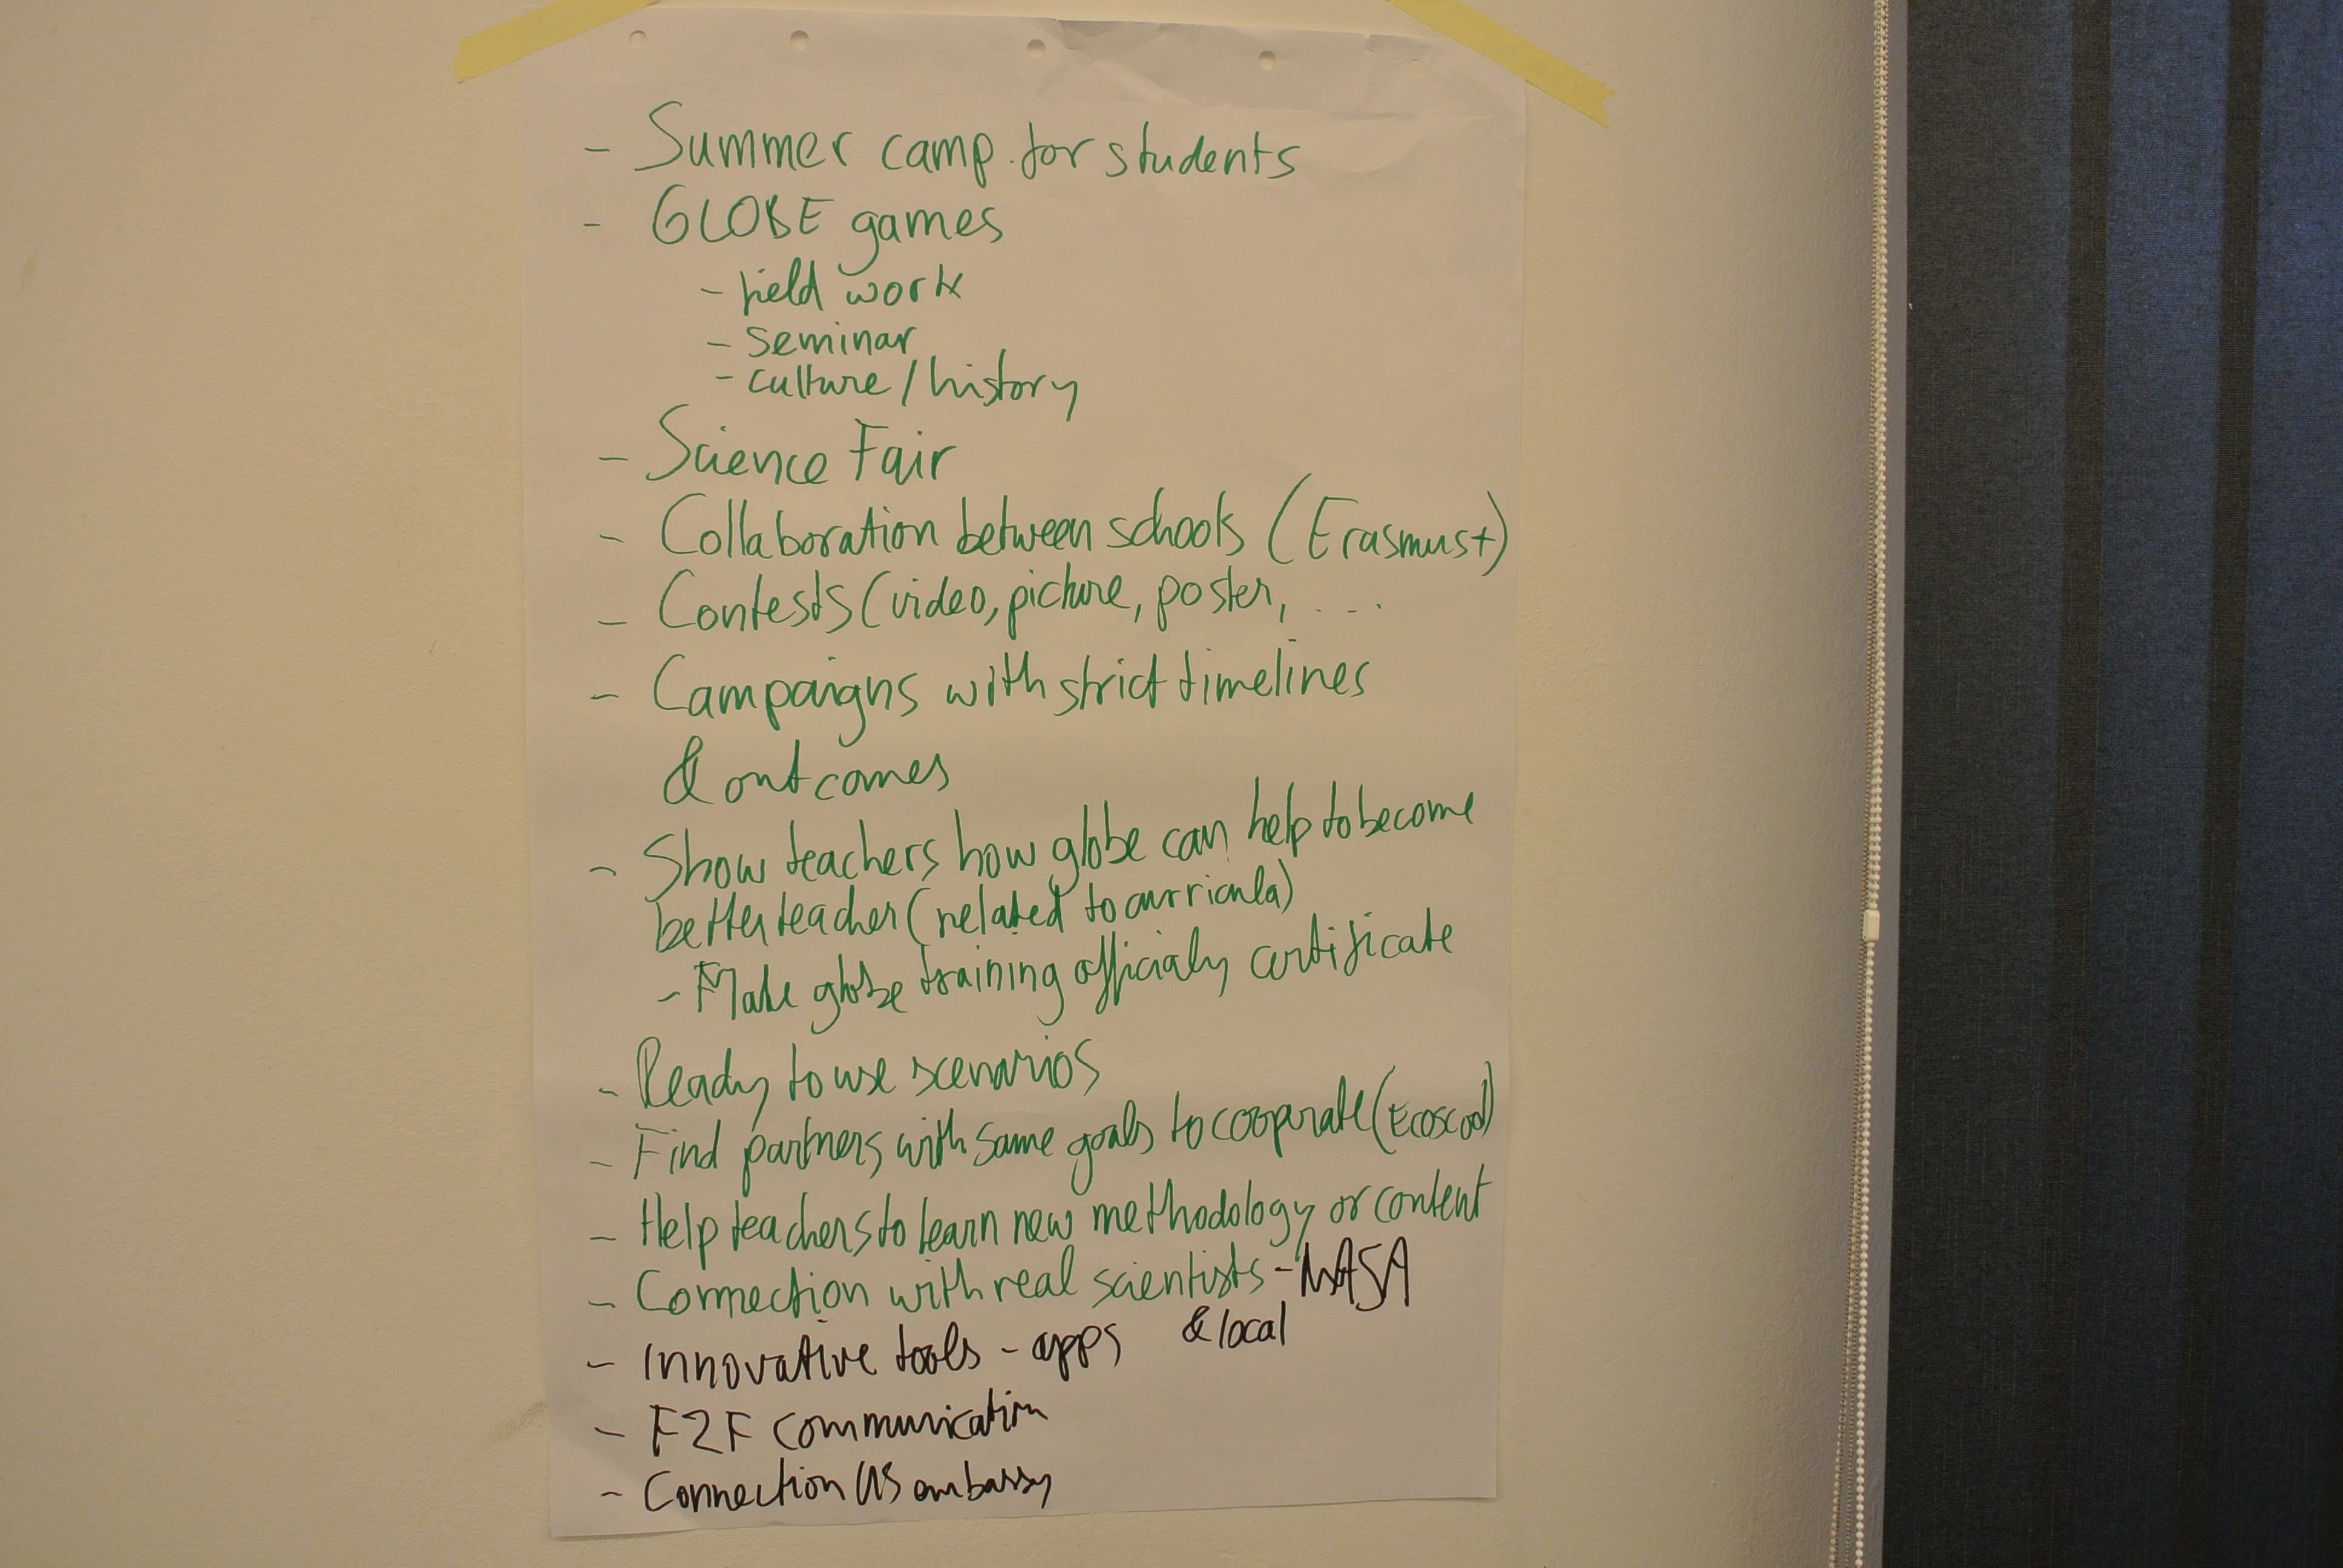 - Summer camp for students
- GLOBE games
- field work
- seminar
- culture / history
- Science Fair
- Collaboration between schools (Erasmus+)
- Contests (video, picture, poster, ....
- Campaigns with strict timelines
& outcomes
- Show teachers how globe can help to become
better teacher (related to curricula)
- Make globe training officialy certificate
- Ready to use scenarios
- Find partners with same goals to cooperate (Ecoscool)
- Help teachers to learn new methodology or content
- Connection with real scientists - NASA
& local
- Innovative tools - apps
- F2F communication
- Connection US embassy